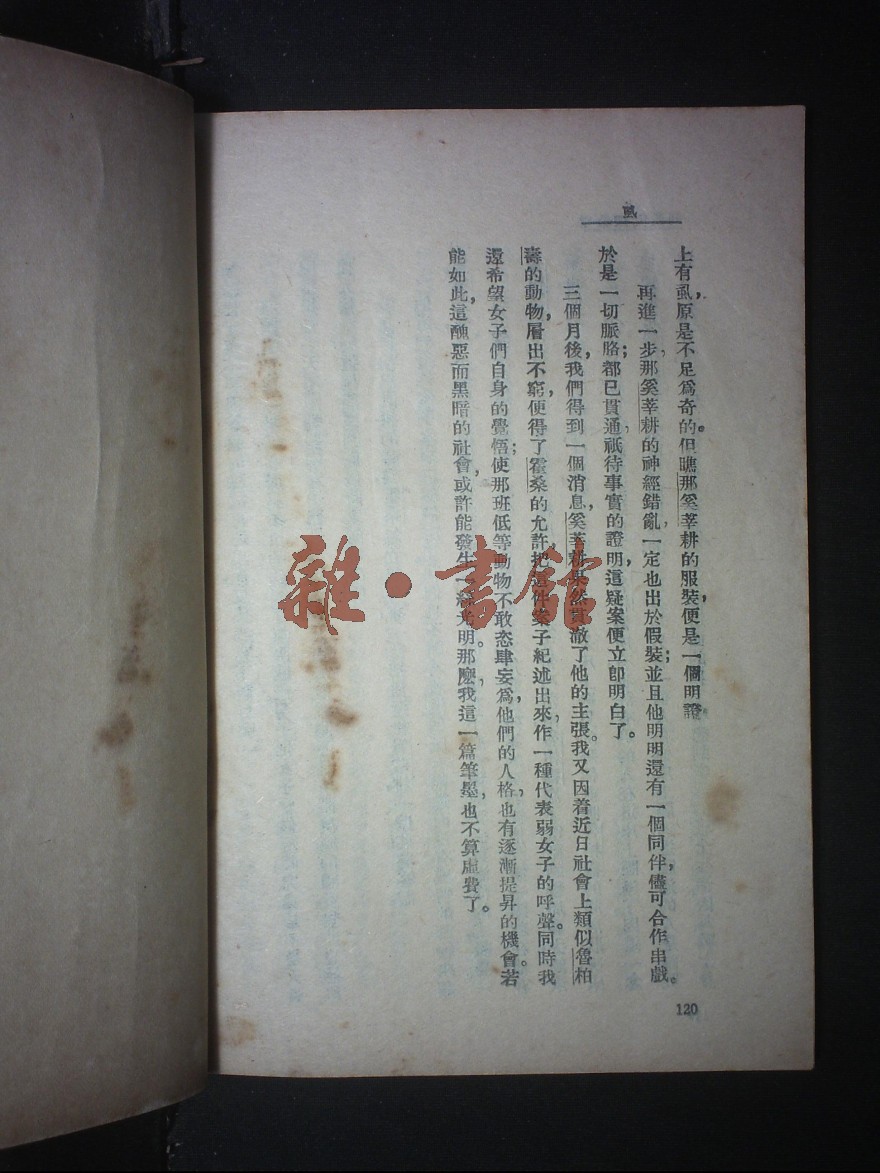 虱
上有虱，原是不足爲奇的。但瞧那奚莘耕的服裝，便是一個明證。
再進一步，那奚莘耕的神經錯亂，一定也出於假裝；並且他明明還有一個同伴，儘可合作串戲。
於是一切脈胳都已貫通，祇待事實的證明，這疑案便立卽明白了。
三個月後，我們得到一個消息，奚莘耕果然貫澈了他的主張。我又因着近日社會上類似魯柏
壽的動物，層出不窮，便得了霍桑的允許，把這件案子紀述出來，作一種代表弱女子的呼聲。同時我
還希望女子們自身的覺悟；使那班低等動物不敢恣肆妄爲，他們的人格，也有逐漸提昇的機會。若
能如此，這醜惡而黑暗的社會，或許能發生一綫光明。那麼，我這一篇筆墨，也不算虛費了。
120
雜·書館